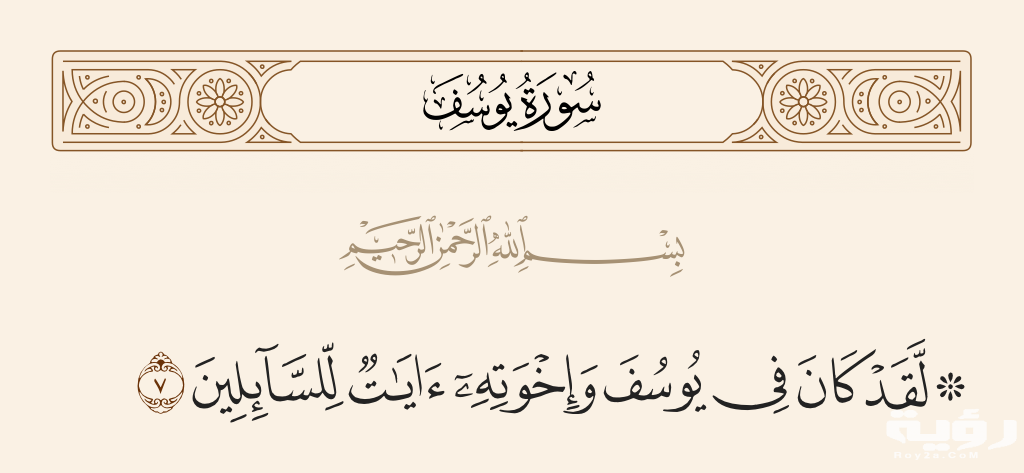 سُورَةُ يُوسُفَ
بِسْمِ ٱللَّهِ ٱلرَّحْمَٰنِ ٱلرَّحِيمِ
۞ لَّقَدْ كَانَ فِى يُوسُفَ وَإِخْوَتِهِۦٓ ءَايَٰتٌ لِّلسَّآئِلِينَ ٧
رؤية
Roy2a.CoM